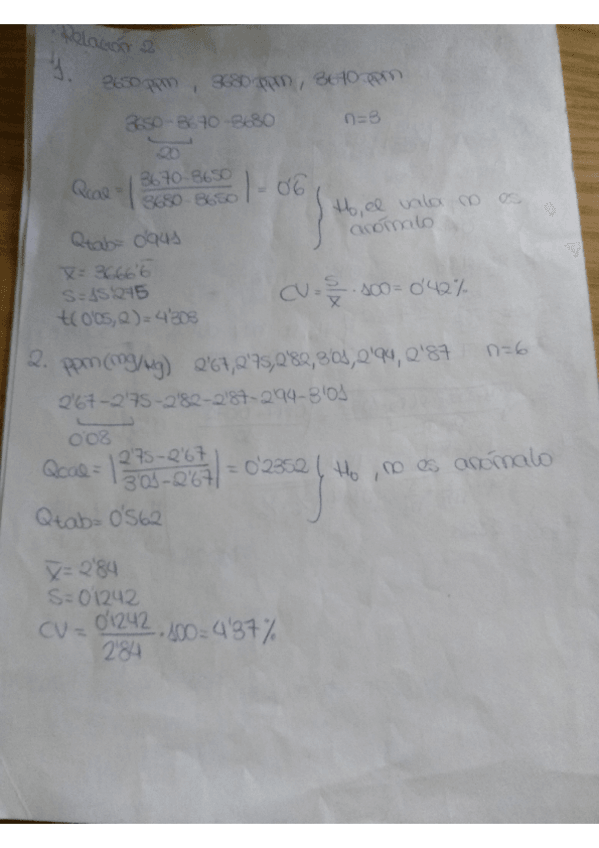 Relación 2
1. 3650 ppm, 3680 ppm, 3670 ppm
3650-3670-3680 n=3
20
Qcal = |3670-3650 / 3680-3650| = 0'6̅ } H₀, el valor no es anómalo
Qtab = 0'941
x̅ = 3666'6̅
S = 15'275
CV = S/x̅ · 100 = 0'42%
t(0'05,2) = 4'303
2. ppm (mg/kg) 2'67, 2'75, 2'82, 3'01, 2'94, 2'87 n=6
2'67-2'75-2'82-2'87-2'94-3'01
0'08
Qcal = |2'75-2'67 / 3'01-2'67| = 0'2352 } H₀, no es anómalo
Qtab = 0'562
x̅ = 2'84
S = 0'1242
CV = 0'1242 / 2'84 · 100 = 4'37%